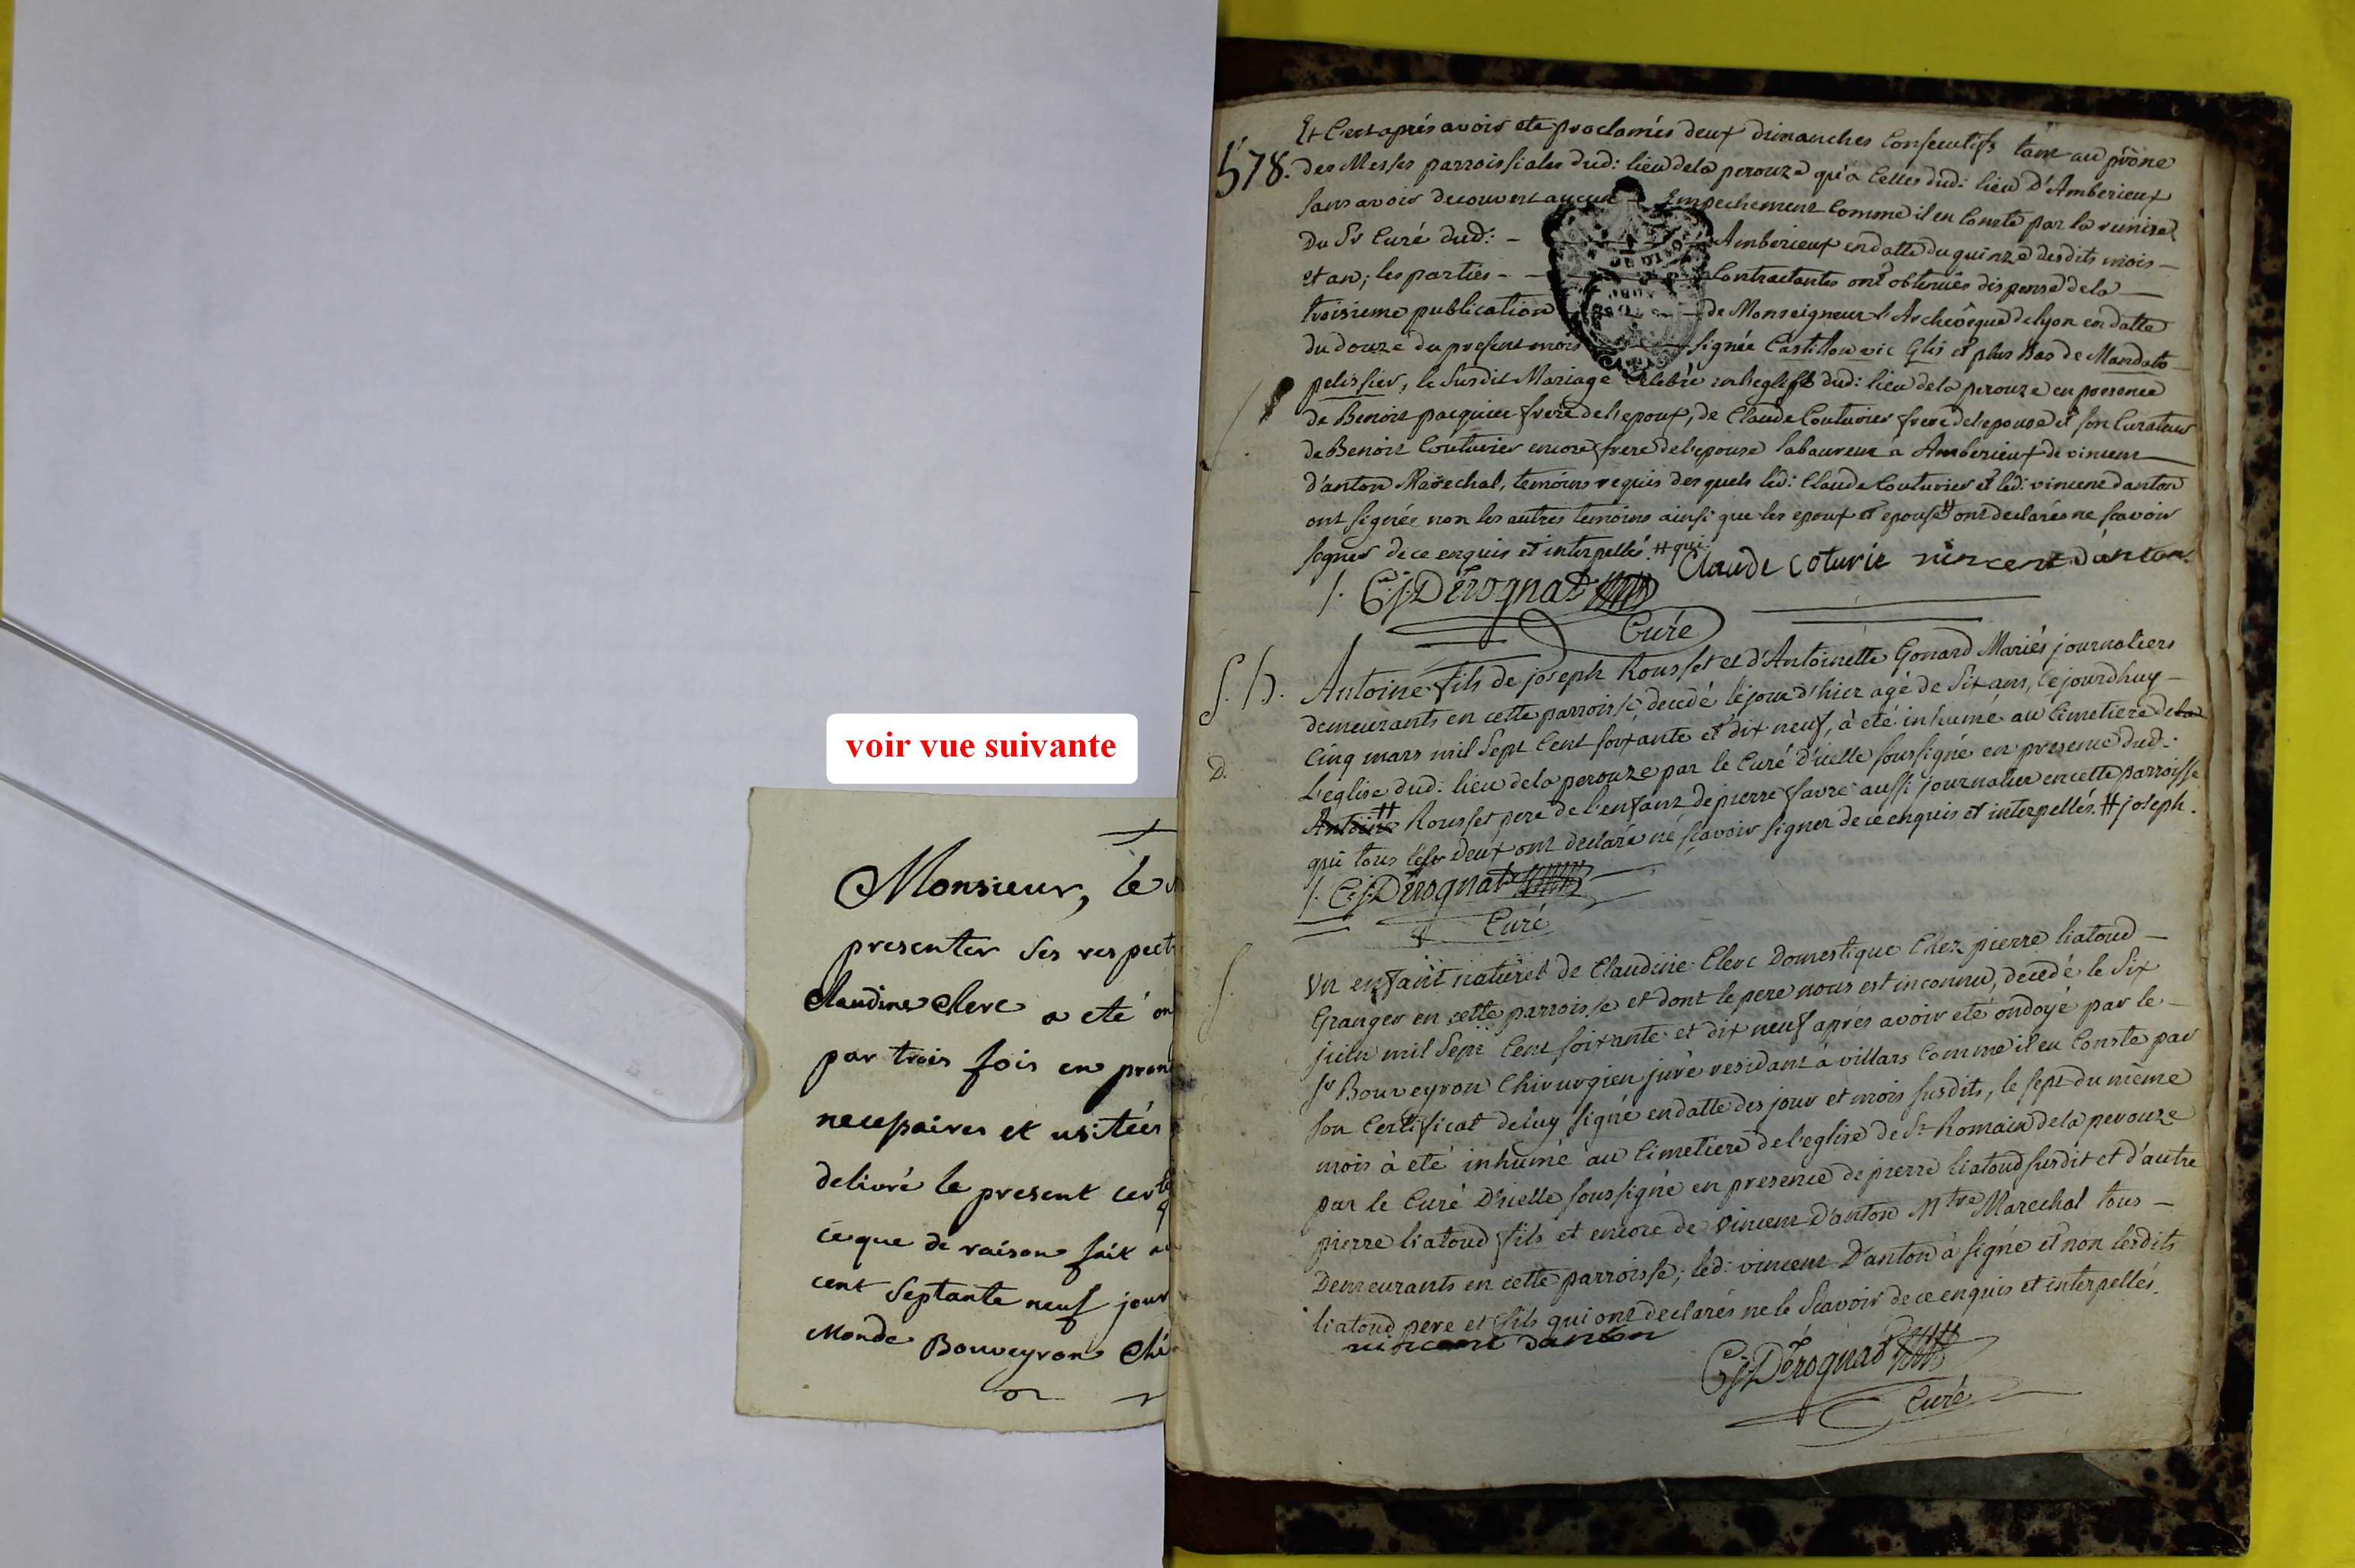 voir vue suivante
Monsieur, le
presenter ses respect
Claudine Clerc a eté on
par trois fois en pron
necessaires et usitées
delivré le present cert
ce que de raison fait
cent Septante neuf jour
Monde Bouveyron Chi
578.
Et C'est aprés avoir eté proclamés deux dimanches Consecutifs tant au prône
des Messes parroissiales dud: lieu de la perouze qu'a Celles dud: lieu D'Amberieux
sans avoir decouvert aucun Empechement Comme il en Conste par la remise
Du Sr Curé dud: - Amberieux en datte du quinze desdits mois -
et an; les parties - - Contractantes ont obtenües dispense de la -
troisieme publication de Monseigneur l'Archevêque de lyon en datte
du douze du present mois signée Castillon vic glis et plus bas de Mandato -
pelissier, le Susdit Mariage Celebré en l'eglise dud: lieu de la perouze en presence
de Benoit pacquier frere de l'epoux, de Claude Couturier frere de l'epouse et son Curateur
de Benoit Couturier encore frere de l'epouse laboureur a Amberieux de vincent
d'anton Maréchal, temoins requis des quels led: Claude Couturier et led: vincent danton
ont signés non les autres temoins ainsi que les epoux et epouse # ont declarés ne scavoir
signer de ce enquis et interpellés. # qui
Claude Coturie vincent danton.
C:J: Dérognat
Curé
S. h. Antoine fils de joseph Rousset et d'Antoinette Gonard Mariés journaliers
demeurants en cette parroisse decedé le jour d'hier agé de Six ans, cejourdhuy -
Cinq mars mil Sept Cent soixante et dix neuf, à eté inhumé au Cimetiere de la
D.
L'eglise dud: lieu de la perouze par le Curé d'icelle soussigné en presence dud:
Antoine # Rousset pere de l'enfant de pierre favre aussi journalier en cette parroisse
qui tous les deux ont declaré ne scavoir signer de ce enquis et interpellés. # joseph.
C:J: Dérognat
Curé
S.
Un enfant naturel de Claudine Clerc Domestique Chez pierre liatoud -
Granger en cette parroisse et dont le pere nous est inconnu, decedé le Six
juin mil Sept Cent soixante et dix neuf aprés avoir eté ondoyé par le -
Sr Bouveyron Chirurgien juré residant à villars Comme il en Conste par
son Certificat de luy signé en datte des jour et mois susdits, le sept du même
mois à eté inhumé au Cimetiere de l'eglise de St Romain de la perouze
par le Curé D'icelle soussigné en presence de pierre liatoud susdit et d'autre
pierre liatoud fils et encore de vincent D'anton Mtre Marechal tous -
Demeurants en cette parroisse; led: vincent D'anton à signé et non lesdits
liatoud pere et fils qui ont declarés ne le Scavoir de ce enquis et interpellés.
vincent danton
C:J: Dérognat
Curé